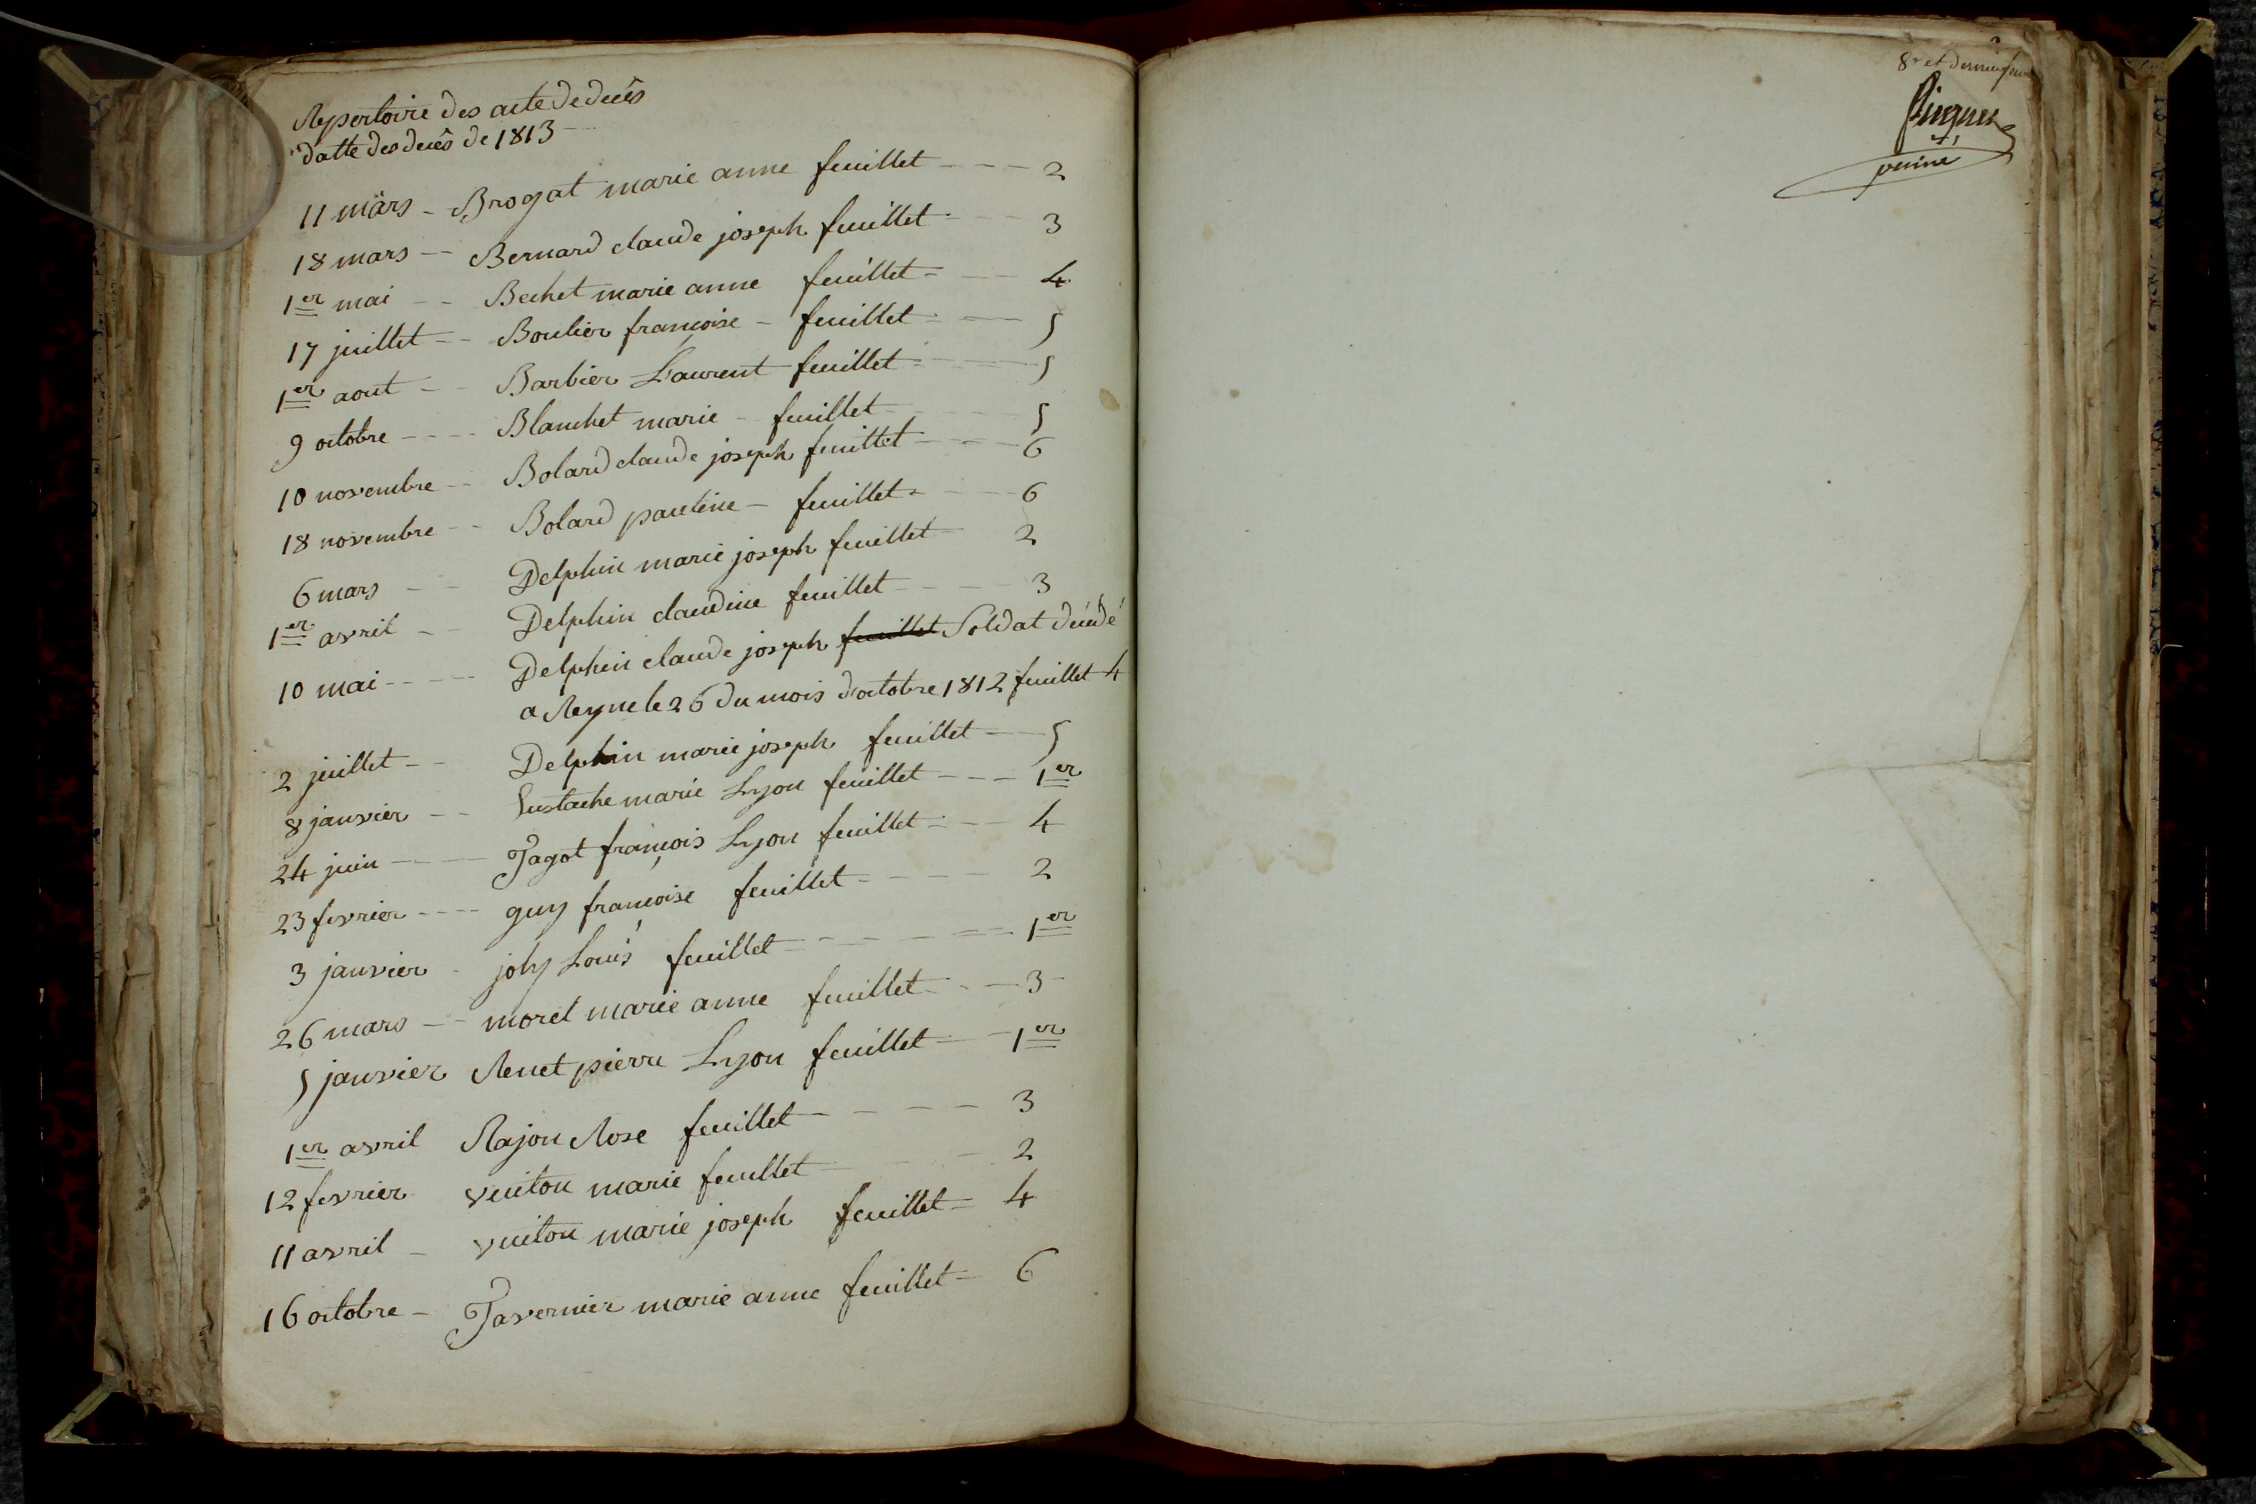 Repertoire des acte de decês
datte des decês de 1813
11 mars - Brogat marie anne feuillet - - - - 2
18 mars - - Bernard claude joseph feuillet - - - 3
1er mai - - Bechet marie anne feuillet - - - 4
17 juillet - - Boulier françoise - feuillet - - - 5
1er aout - - Barbier Laurent feuillet - - - 5
9 octobre - - - - Blanchet marie - feuillet - - - 5
10 novembre - - Bolard claude joseph feuillet - - - - 6
18 novembre - - Bolard pauline - feuillet - - - 6
6 mars - - Delphin marie joseph feuillet - 2
1er avril - - Delphin claudine feuillet - - - 3
10 mai - - - - Delphin claude joseph feuillet Soldat décédé
a Reyne le 26 du mois d'octobre 1812 feuillet 4
2 juillet - - Delphin marie joseph feuillet - - 5
8 janvier - - Eustache marie Lyon feuillet - - - 1er
24 juin - - - Jagot françois Lyon feuillet - - - 4
23 fevrier - - - - guy françoise feuillet - - - - 2
3 janvier - joly Louis feuillet - - - - - 1er
26 mars - - morel marie anne feuillet - - - 3
5 janvier Renet pierre Lyon feuillet - - 1er
1er avril Rajon Rose feuillet - - - - 3
12 fevrier vuiton marie feuillet - - - 2
11 avril - vuiton marie joseph feuillet - 4
16 octobre - Tavernier marie anne feuillet - 6
8e et dernier